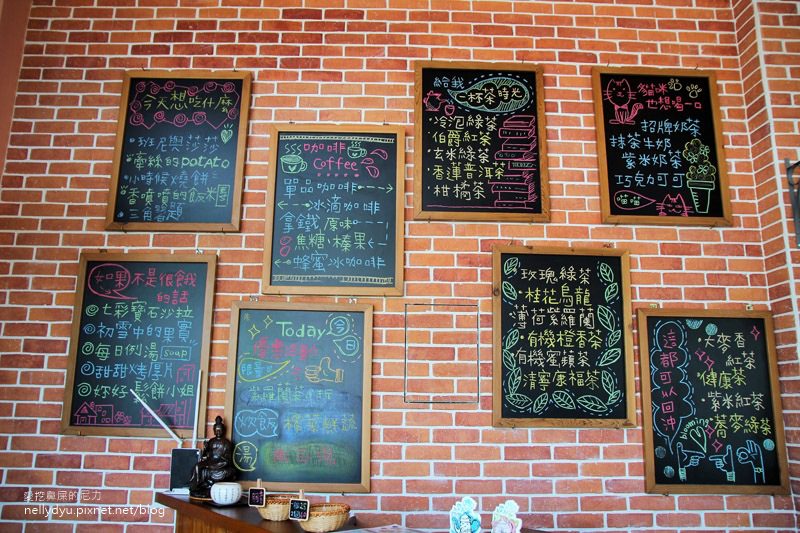 今天想吃什麼
·班尼與莎莎
·薯絲的potato
·小時候燒餅
·香噴噴的飯米團
咖啡
Coffee
單品咖啡
冰滴咖啡
拿鐵 原味
焦糖·榛果
蜂蜜冰咖啡
給我
一杯茶時光
冷泡綠茶
伯爵紅茶
玄米綠茶
香蓮普洱茶
柑橘茶
貓咪
也想喝一口
招牌奶茶
抹茶牛奶
紫米奶茶
巧克力可可
喵喵
如果不是很餓
的話
七彩寶石沙拉
初雪中的果實
每日例湯 soup
甜甜烤黑片
妳好鬆餅小姐
Today 今日
炊飯
湯
玫瑰綠茶
·桂花烏龍
薄荷紫羅蘭
·有機橙香茶
有機蜜蘋茶
·清寧康福茶
這都可以回沖
·大麥香
紅茶
·健康茶
·紫米紅茶
·蕎麥綠茶
愛挖鼻屎的尼力
nellydyu.pixnet.net/blog